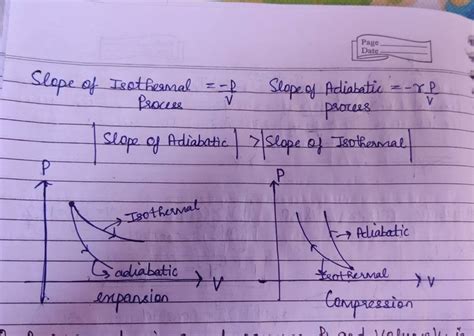 Page
Date
Slope of Isothermal = -P/V
Process
Slope of Adiabatic = -γ P/V
process
|Slope of Adiabatic| > |Slope of Isothermal|
P
Isothermal
adiabatic
V
expansion
P
Adiabatic
Isothermal
V
Compression